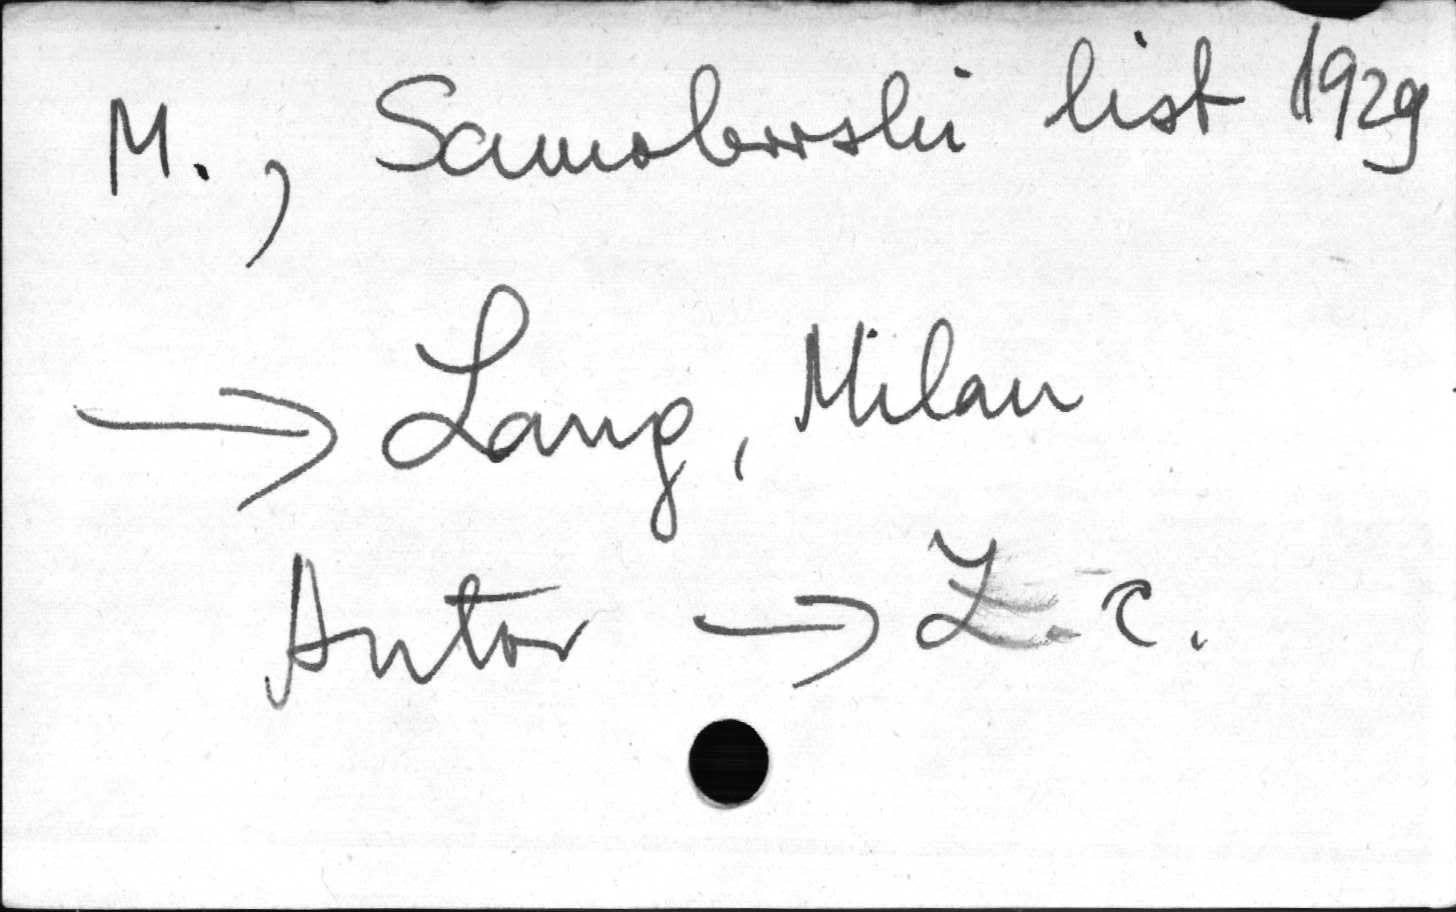 M., Samoborski list 1929
→ Lang, Milan
Autor → L. c.